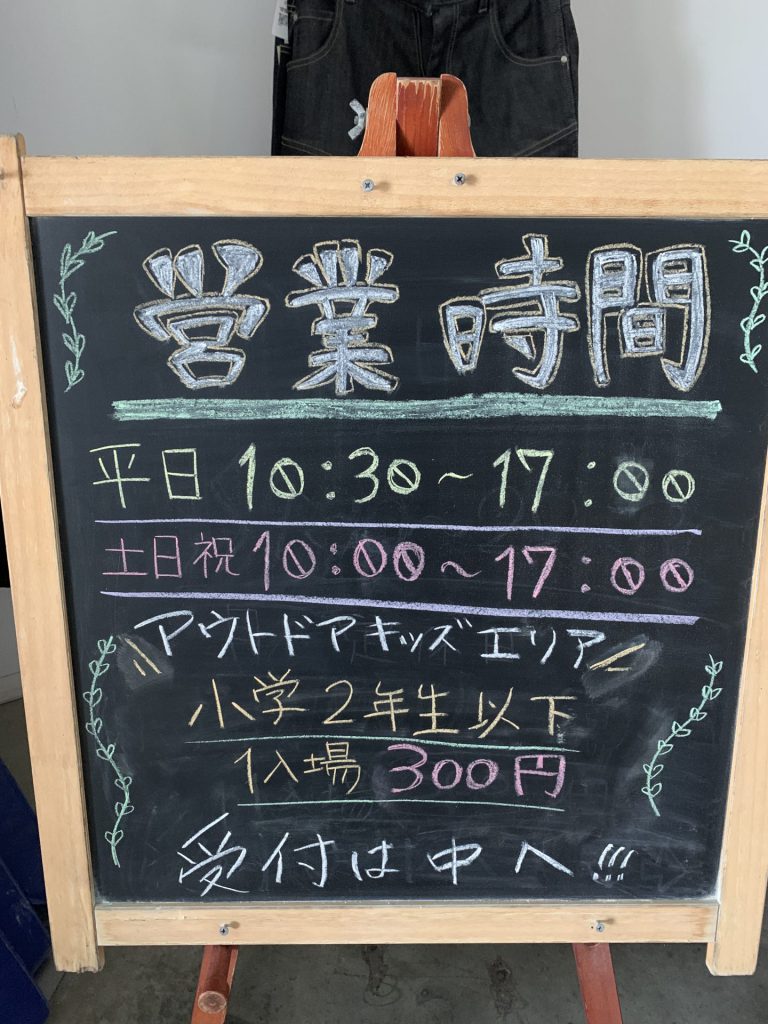 営業時間
平日 10:30～17:00
土日祝 10:00～17:00
アウトドアキッズエリア
小学2年生以下
1入場 300円
受付は中へ!!!